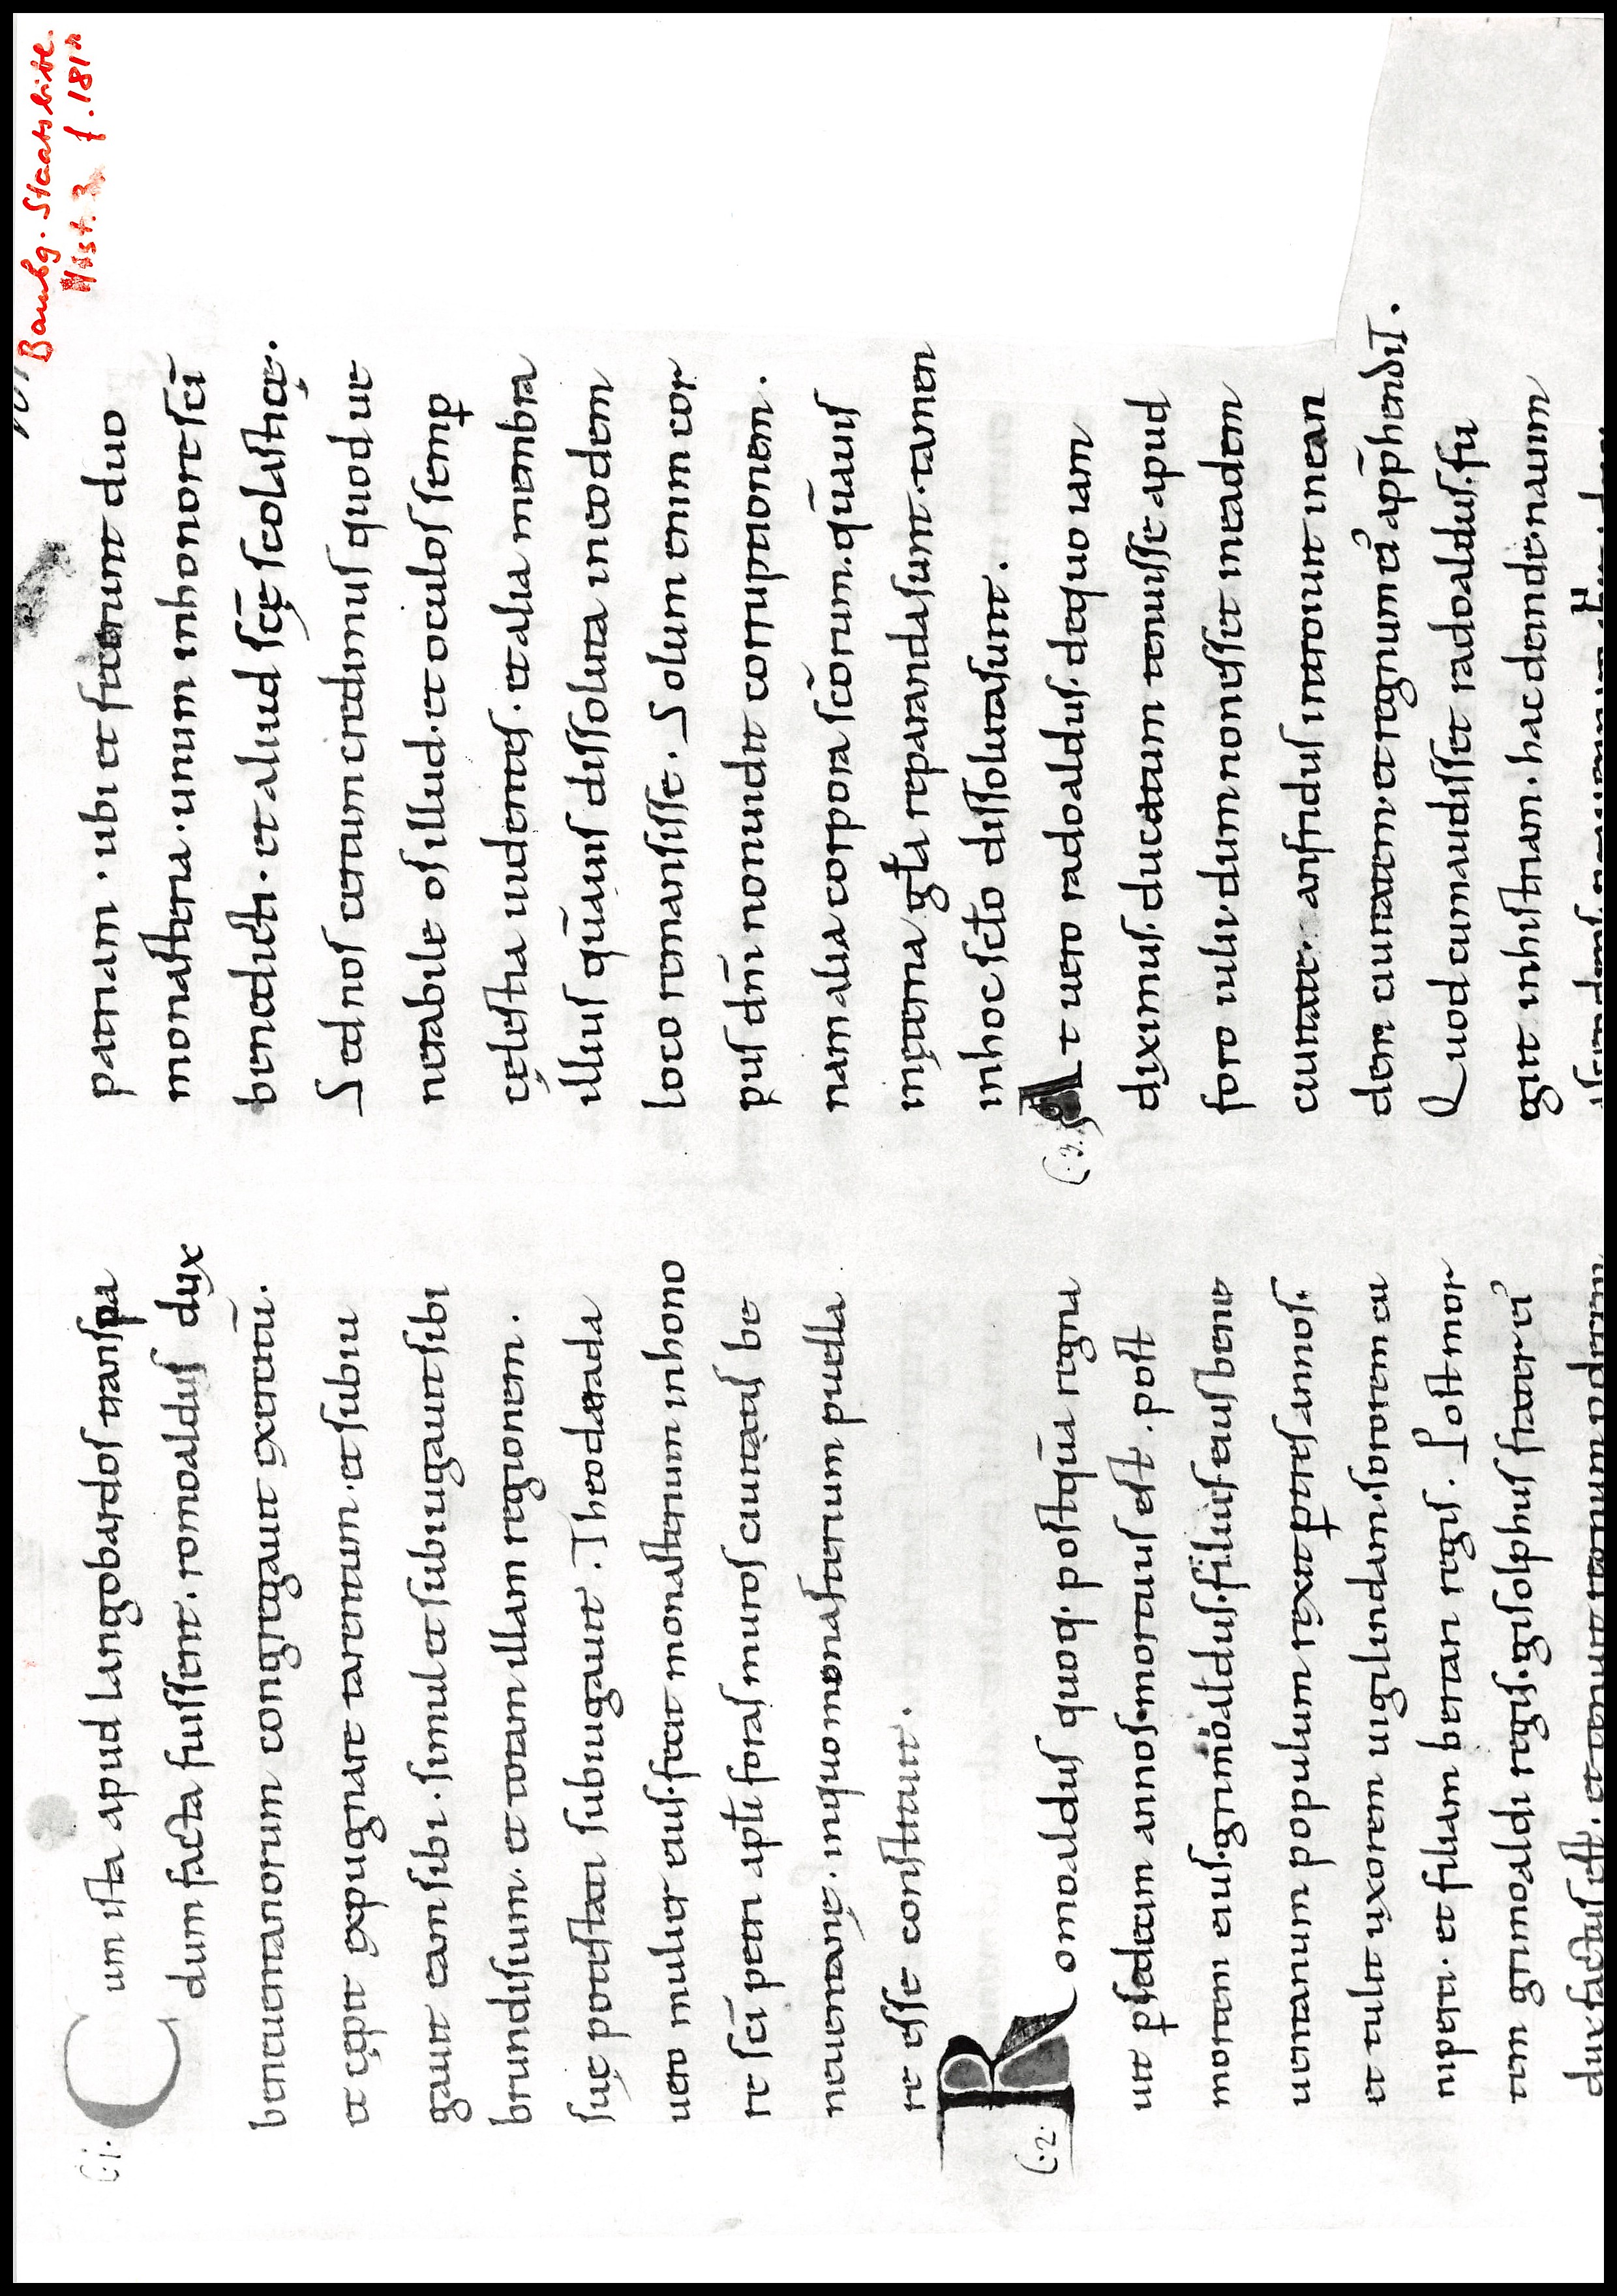 Bambg. Staatsbibl.
Hist. 3 f. 181r
C. 1.
Cum ista apud langobardos transpa
dum facta fuissent. romoaldus dux
beneuentanorum congregauit exercitū.
et cępit expugnare tarentum. et subiu
gauit eam sibi. simul et subiugauit sibi
brundisium. et totam illam regionem.
suę potestati subiugauit. Theoderada
uero mulier eius. fecit monasterium inhono
re sc̄i petri apłi foras muros ciuitatis be
neuentanę. inquo monasterium puella
re esse constituit.
C. 2.
Romoaldus quoq. postquā regna
uit p̱sedecim annos. mortuus est. post
mortem eius. grimoaldus. filius eius bene
uentanum populum rexit p̱ tres annos.
et tulit uxorem uigilindam. sororem cu
niperti. et filiam bertari regis. Post mor
tem grimoaldi regis. gisolphus frater ei᾽
dux factus est. et tenuit regnum
patriam. ubi et fecerunt duo
monasteria. unum inhonore sc̄i
benedicti. et aliud sc̄ę scolasticę.
Sed nos certum credimus quod ue
nerabile os illud. et oculos semp̱
cęlestia uidentes. et alia membra
illius quāuis dissoluta in eodem
loco remansisse. Solum enim cor
pus dn̄i nonuidit corruptionem.
nam alia corpora sc̄orum. quāuis
inęterna gła reparanda sunt. tamen
inhoc sc̄lo dissoluta sunt.
C. 3.
At uero radoaldus. dequo iam
diximus. ducatum tenuisse apud
foro iulii. dum nonesset ineadem
ciuitate. ansfridus introiuit inean
dem ciuitatem. et regnum ei᾽ app̄hendit.
Quod cumaudisset radoaldus. fu
giit inhistriam. hac deinde. nauim